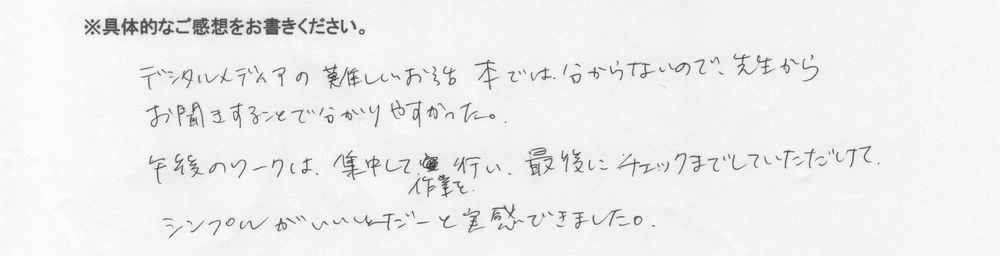 ※具体的なご感想をお書きください。
デジタルメディアの難しいお話 本では、分からないので、先生から
お聞きすることで分かりやすかった。
午後のワークは、集中して作業を行い、最後にチェックまでしていただけて、
シンプルがいいんだーと実感できました。